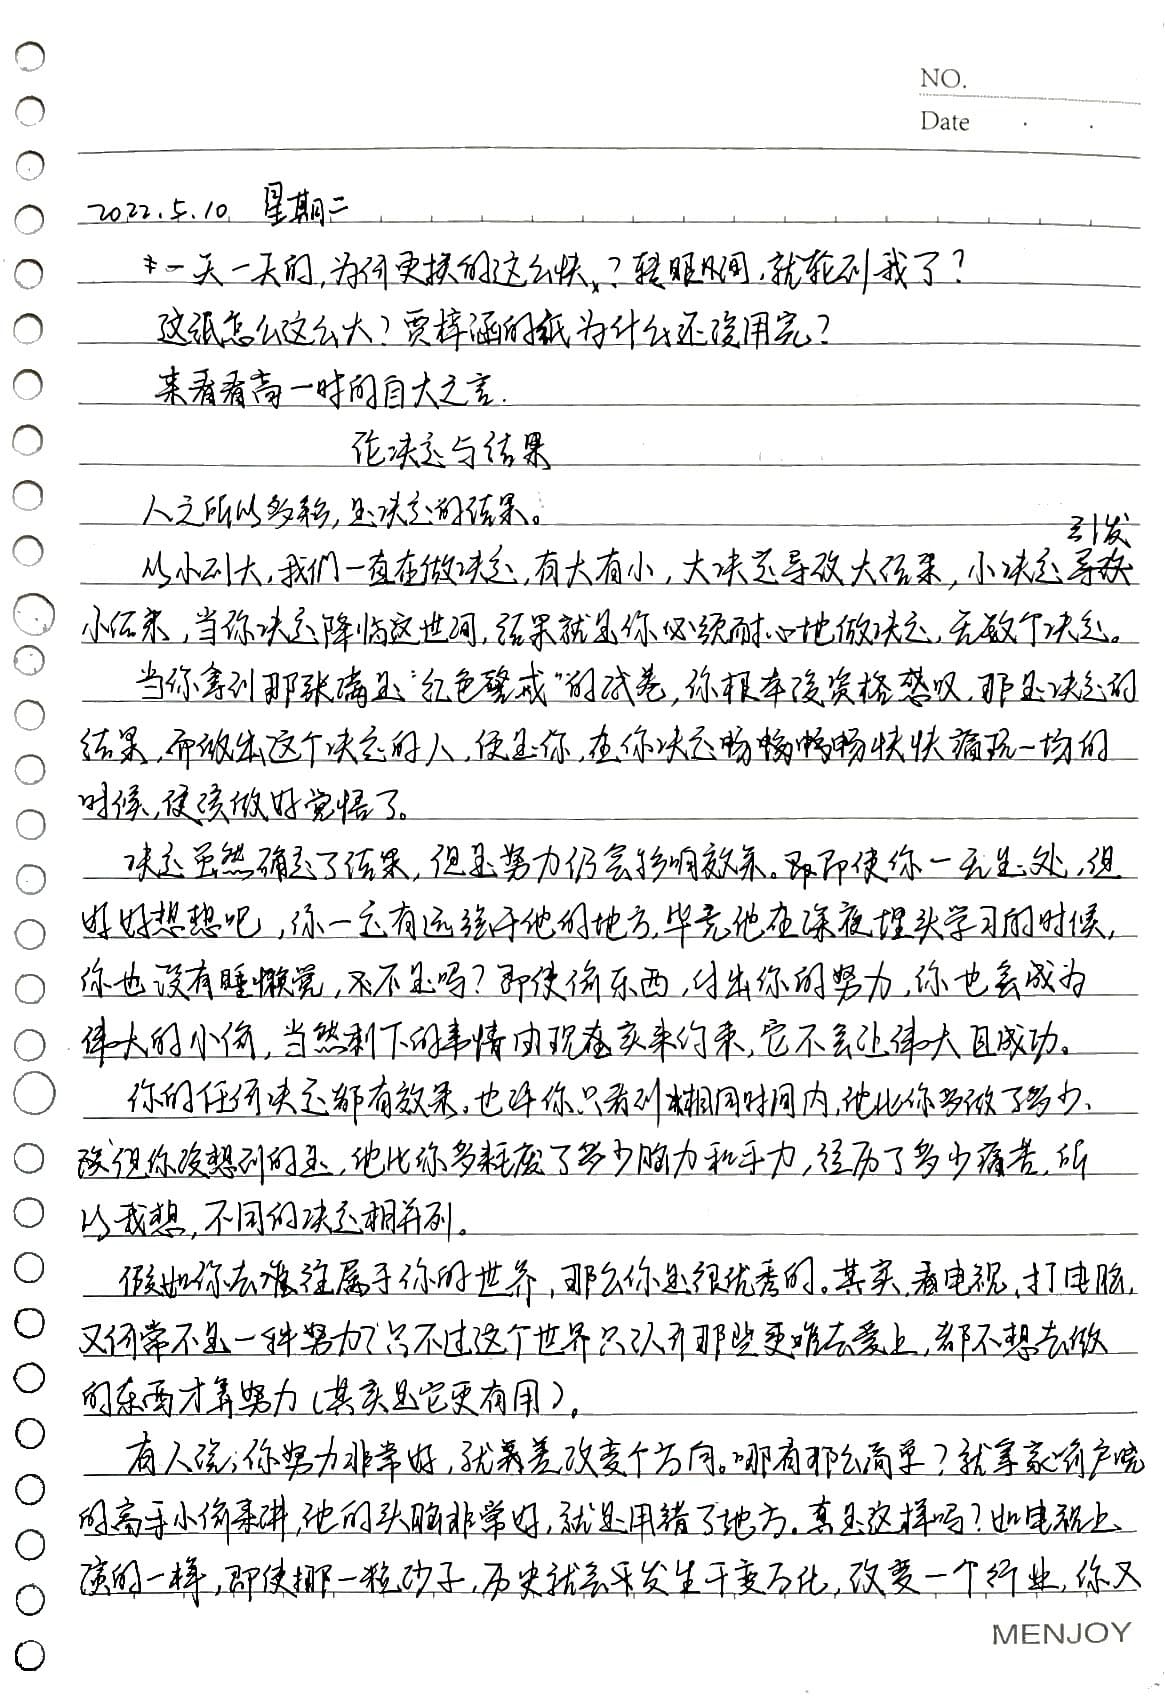 NO.
Date
2022.5.10 星期二
一天一天的,为何更换的这么快?转眼间,就轮到我了?
这纸怎么这么大?贾梓涵的纸为什么还没用完?
来看看高一时的自大之言.
论决定与结果
人之所以多彩,是决定的结果。
引发
从小到大,我们一直在做决定,有大有小,大决定导致大结果,小决定导致
小结果,当你决定降临这世间,结果就是你必须耐心地做决定,无数个决定。
当你拿到那张满是“红色警戒”的试卷,你根本没资格愁叹,那是决定的
结果,而做出这个决定的人,便是你,在你决定畅畅快快痛玩一场的
时候,便该做好觉悟了。
决定虽然确定了结果,但是努力仍会影响效果。即使你一无是处,但
好好想想吧,你一定有远强于他的地方,毕竟他在深夜埋头学习的时候,
你也没有睡懒觉,不是吗?即使偷东西,付出你的努力,你也会成为
伟大的小偷,当然剩下的事情由现在来约束,它不会让伟大且成功。
你的任何决定都有效果。也许你只看到相同时间内,他比你多做了多少,
但你没想到的是,他比你多耗废了多少脑力和手力,经历了多少痛苦,所
以我想,不同的决定相并列。
假如你去谁往属于你的世界,那么你是很优秀的。其实,看电视,打电脑,
又何常不是一种努力?只不过这个世界只认为那些更难去爱上,都不想去做
的东西才算努力(其实是它更有用)。
有人说:你努力非常好,就差改变个方向。哪有那么简单?就拿家喻户晓
的高手小偷来讲,他的头脑非常好,就是用错了地方。真是这样吗?如电视上
演的一样,即使挪一粒沙子,历史就会发生千变万化,改变一个行业,你又
MENJOY